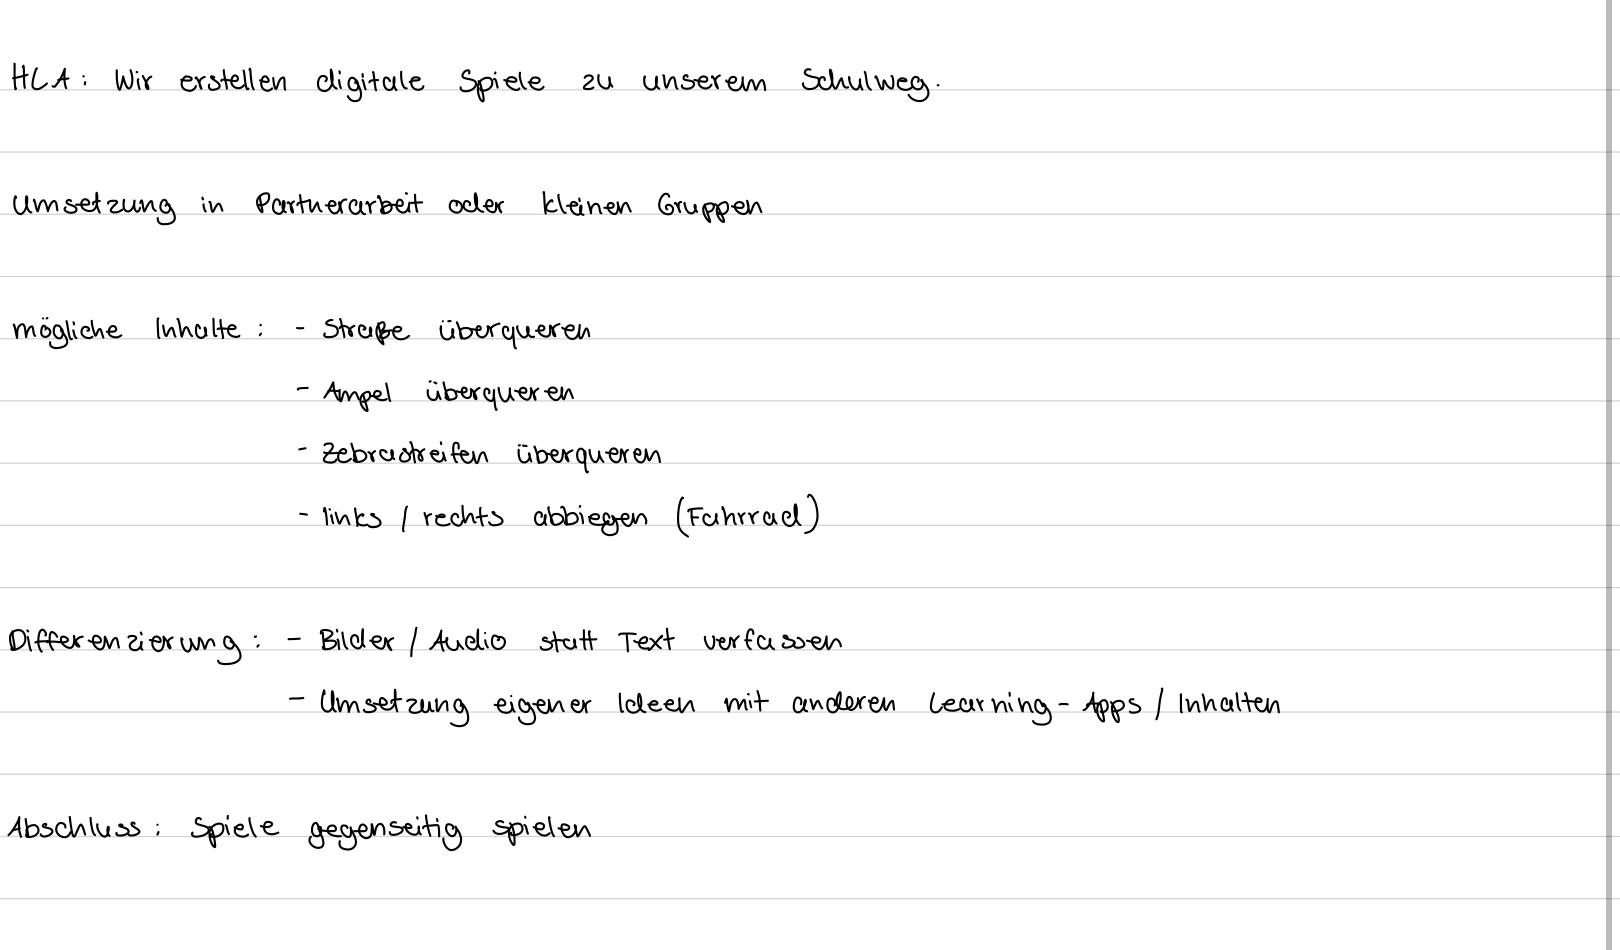 HLA: Wir erstellen digitale Spiele zu unserem Schulweg.
Umsetzung in Partnerarbeit oder kleinen Gruppen
mögliche Inhalte: - Straße überqueren
- Ampel überqueren
- Zebrastreifen überqueren
- links / rechts abbiegen (Fahrrad)
Differenzierung: - Bilder / Audio statt Text verfassen
- Umsetzung eigener Ideen mit anderen Learning-Apps / Inhalten
Abschluss: Spiele gegenseitig spielen